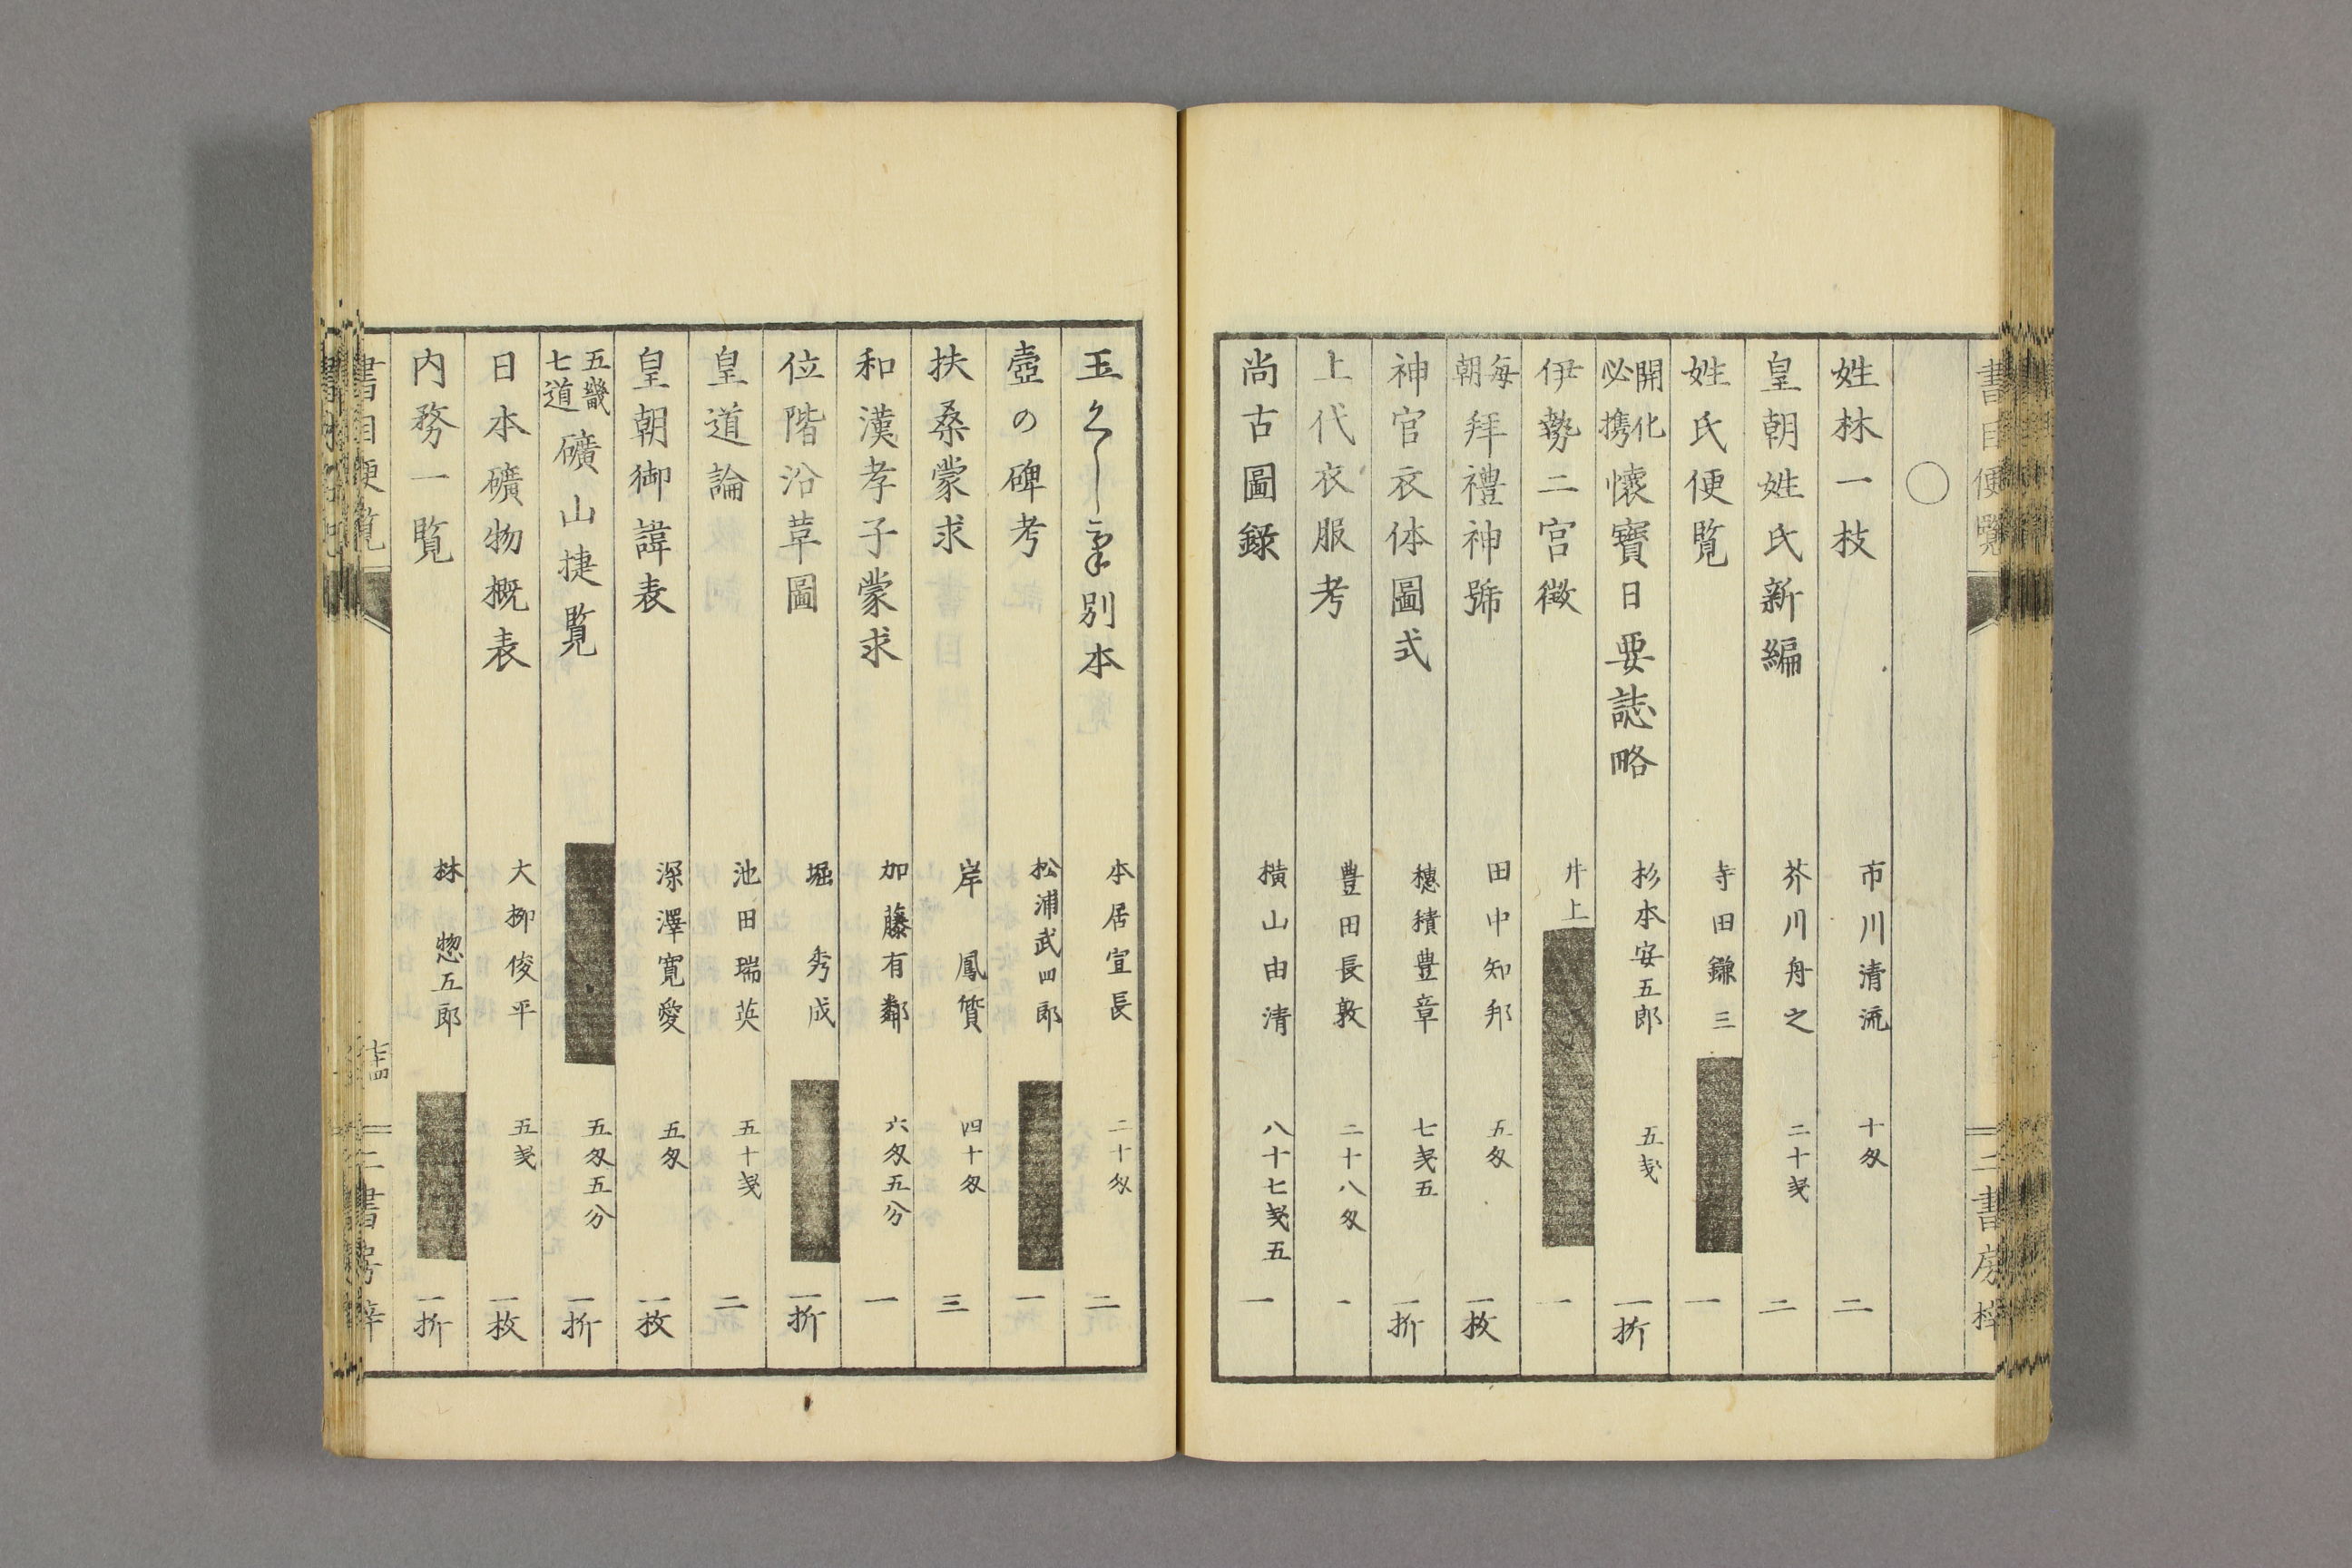 書目便覧
二書房梓
○
姓林一枝 市川清流 十匁 二
皇朝姓氏新編 芥川舟之 二十銭 二
姓氏便覧 寺田鎌三 一
開化必携懐寶日要誌略 杉本安五郎 五銭 一折
伊勢二宮徴 井上 一
毎朝拜禮神號 田中知邦 五匁 一枚
神官衣体圖式 穂積豊章 七銭五 一折
上代衣服考 豊田長敦 二十八匁 一
尚古圖録 横山由清 八十七銭五 一
玉くしげ別本 本居宣長 二十匁 二
壺の碑考 松浦武四郎 一
扶桑蒙求 岸鳳質 四十匁 三
和漢孝子蒙求 加藤有鄰 六匁五分 一
位階沿革圖 堀秀成 一折
皇道論 池田瑞英 五十銭 二
皇朝御諱表 深澤寛愛 五匁 一枚
五畿七道礦山捷覧 五匁五分 一折
日本礦物概表 大柳俊平 五銭 一枚
内務一覧 林惣五郎 一折
書目便覧
二書房梓